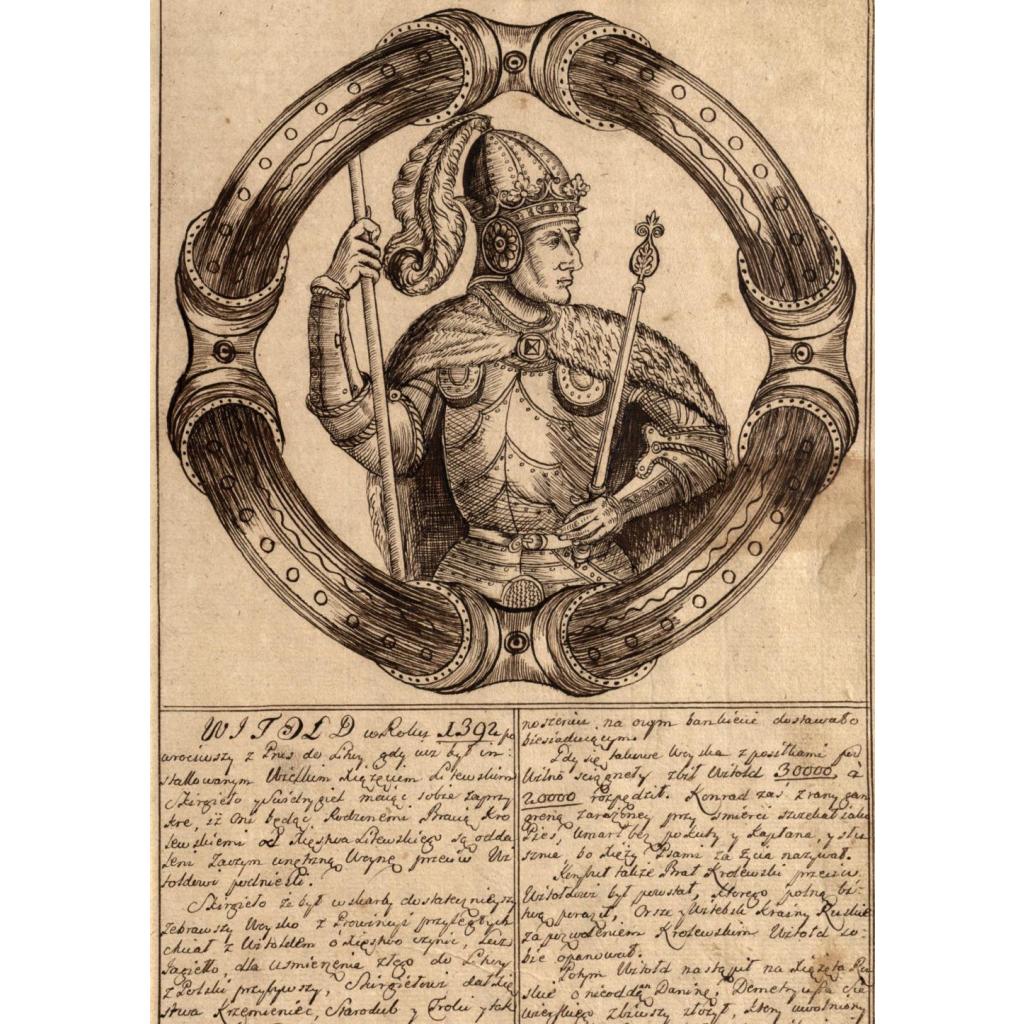 WITOLD w Roku 1392 po
wrociwszy z Prus do Litwy, gdy iuż był in=
stallowanym Wielkim Xiążęciem Litewskim
Skirgieło y Swidrygieł maiąc sobie za przy
kre, iż Oni będąc Rodzonemi Bracią Kro
lewskiemi od Xięstwa Litewskiego są odda
leni zaczym wnętrzną Woynę przeciw Wi
toldowi podnieśli.
Skirgieło że był w skarby dostatecznieyszy
zebrawszy Woysko z Prowincyi przyległych
chciał z Witoldem o Xięstwo czynić, lecz
Jagiełło, dla uśmierzenia złego do Litwy
z Polski przybywszy, Skirgiełowi dał Xię
stwa Krzemieniec, Starodub y Troki y tak
noszeniu na owym bankiecie dostawało
biesiaduiącym.
Gdy się takowe Woyska z posiłkami pod
Wilno sciągneły zbił Witold 30000, á
20000 rozpędził. Konrad zaś z rany gan
greną zarażoney przy śmierci szczekał iako
Pies, umarł bez pokuty y Kapłana, y słu
sznie, bo Xięży Psami za życia nazywał.
także Brat Krolewski przeciw
Witoldowi był powstał, ktorego polną bi
twą poraził, Orsze y Witebsk Krainy Ruskie
za pozwoleniem Krolewskim Witold so
bie opanował.
Potym Witold nastąpił na Xiążęta Ru
skie o nieoddaną Daninę, Demetryusza Sie
wierskiego zbiwszy złożył, ktory uwolniony